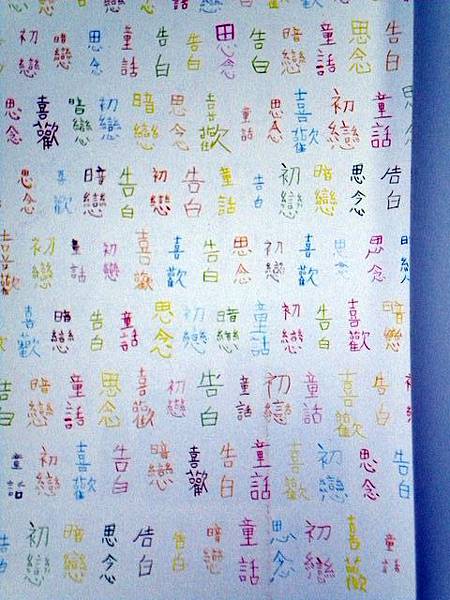 初戀 暗戀 思念 童話 告白 告白 思念 告白 暗戀 童話 思念 告白
思念 喜歡 暗戀 初戀 暗戀 思念 喜歡 童話 思念 喜歡 初戀 童話
思念 喜歡 暗戀 告白 初戀 告白 童話 告白 初戀 暗戀 思念 告白
初戀 童話 初戀 喜歡 喜歡 告白 思念 初戀 喜歡 思念 思念 暗戀
喜歡 暗戀 告白 童話 思念 初戀 暗戀 童話 初戀 告白 喜歡 暗戀
告白 暗戀 童話 思念 喜歡 初戀 告白 童話 初戀 童話 喜歡 告白
童話 初戀 喜歡 告白 暗戀 喜歡 告白 童話 喜歡 初戀 思念 告白
告白 初戀 暗戀 思念 告白 告白 暗戀 童話 思念 初戀 喜歡 童話